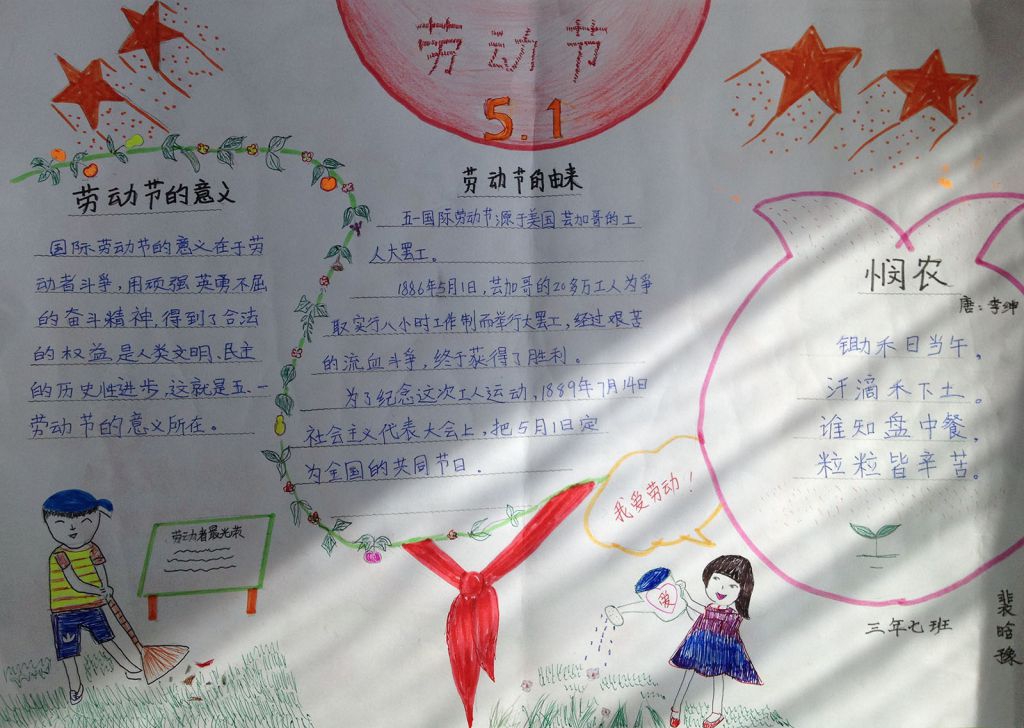 劳动节
5.1
劳动节的意义
国际劳动节的意义在于劳
动者斗争,用顽强英勇不屈
的奋斗精神,得到了合法
的权益,是人类文明、民主
的历史性进步,这就是五.一
劳动节的意义所在。
劳动节的由来
五一国际劳动节源于美国芸加哥的工
人大罢工。
1886年5月1日,芸加哥的20多万工人为争
取实行八小时工作制而举行大罢工,经过艰苦
的流血斗争,终于获得了胜利。
为了纪念这次工人运动,1889年7月14日
社会主义代表大会上,把5月1日定
为全国的共同节日.
悯农
唐:李绅
锄禾日当午。
汗滴禾下土。
谁知盘中餐,
粒粒皆辛苦。
我爱劳动!
劳动者最光荣
爱
三年七班
裴晗豫